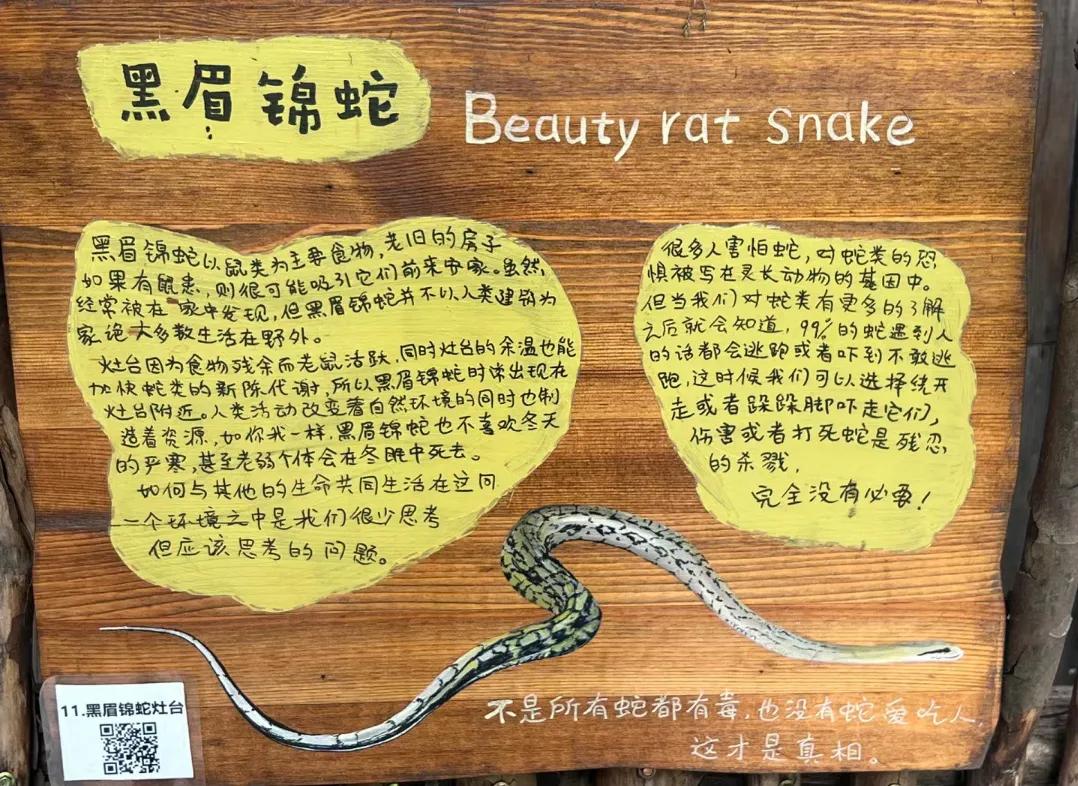 黑眉锦蛇
Beauty rat snake
黑眉锦蛇以鼠类为主要食物,老旧的房子
如果有鼠患,则很可能吸引它们前来安家。虽然,
经常被在家中发现,但黑眉锦蛇并不以人类建筑为
家绝大多数生活在野外。
灶台因为食物残余而老鼠活跃,同时灶台的余温也能
加快蛇类的新陈代谢,所以黑眉锦蛇时常出现在
灶台附近。人类活动改变着自然环境的同时也制
造着资源,如你我一样,黑眉锦蛇也不喜欢冬天
的严寒,甚至老弱个体会在冬眠中死去。
如何与其他的生命共同生活在这同
一个环境之中是我们很少思考
但应该思考的问题。
很多人害怕蛇,对蛇类的恐
惧被写在灵长动物的基因中。
但当我们对蛇类有更多的了解
之后就会知道,99%的蛇遇到人
的话都会逃跑或者吓到不敢逃
跑,这时候我们可以选择绕开
走或者跺跺脚吓走它们,
伤害或者打死蛇是残忍
的杀戮,
完全没有必要!
不是所有蛇都有毒,也没有蛇爱吃人,
这才是真相。
11.黑眉锦蛇灶台